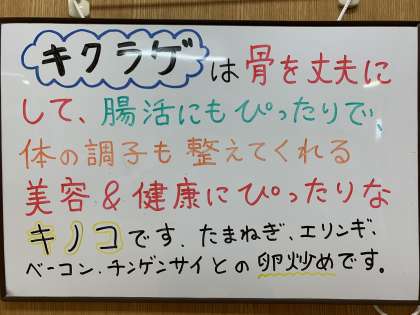 キクラゲは骨を丈夫に
して、腸活にもぴったりで
体の調子も整えてくれる
美容&健康にぴったりな
キノコです、たまねぎ、エリンギ、
ベーコン、チンゲンサイとの卵炒めです。